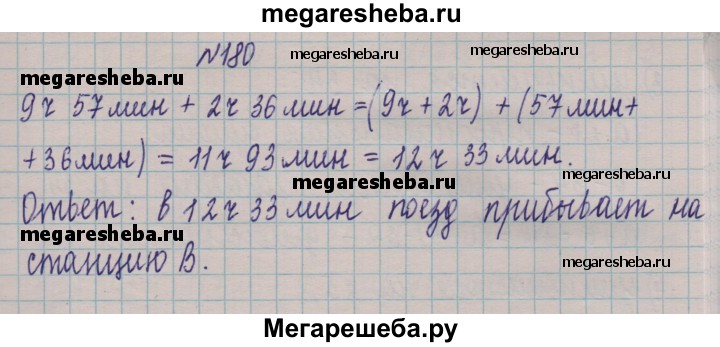 megaresheba.ru
№180
megaresheba.ru
megaresheba.ru
megaresheba.ru
9ч 57мин + 2ч 36мин =(9ч+2ч) + (57мин+
+36мин) = 11ч 93мин = 12ч 33мин.
megaresheba.ru
megaresheba.ru
Ответ: в 12ч 33мин поезд прибывает на
megaresheba.ru
станцию В.
megaresheba.ru
Мегарешеба.ру